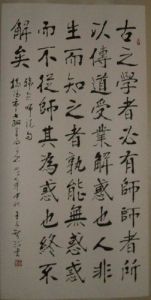 古之学者必有師師者所
以傳道受業解惑也人非
生而知之者孰能無惑惑
而不從師其為惑也終不
解矣
韩愈師說句